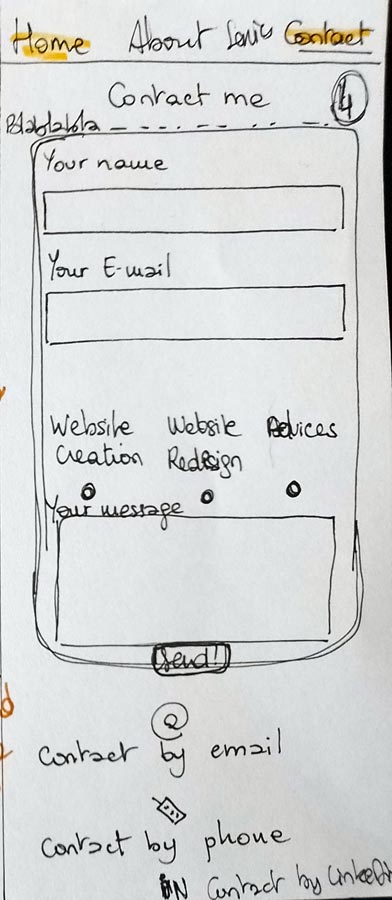 Home About Servic Contact
Contact me
4
Blablabla
Your name
Your E-mail
Website Website Advices
Creation Redesign
Your message
Send!
@
Contact by email
Contact by phone
IN Contact by LinkedIn